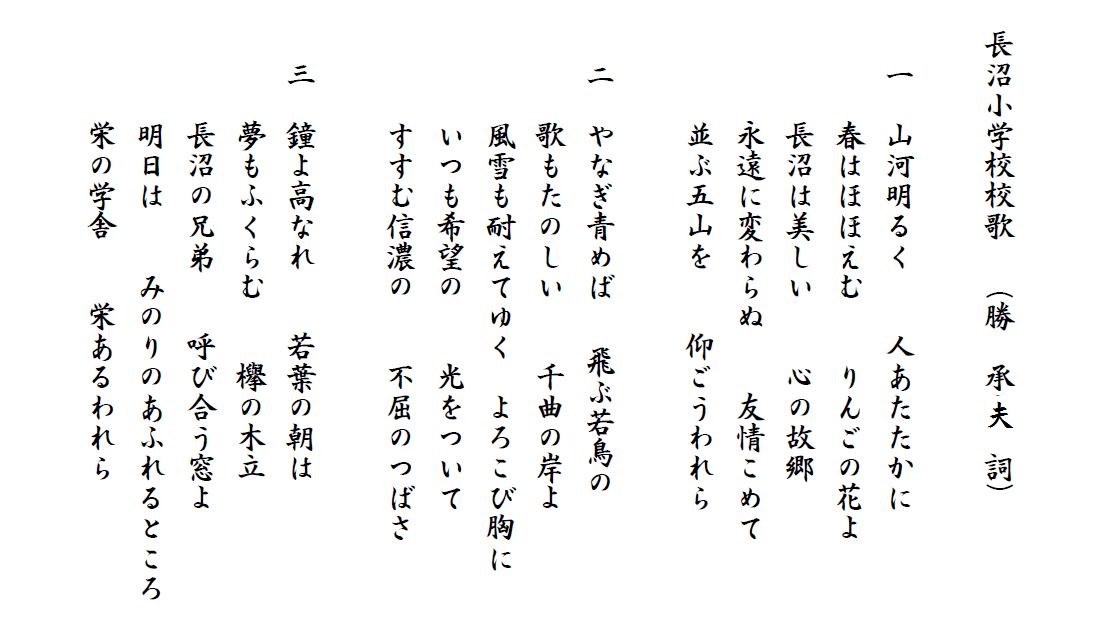 長沼小学校校歌　（勝　承夫　詞）
一　山河明るく　人あたたかに
春はほほえむ　りんごの花よ
長沼は美しい　心の故郷
永遠に変わらぬ　友情こめて
並ぶ五山を　仰ごうわれら
二　やなぎ青めば　飛ぶ若鳥の
歌もたのしい　千曲の岸よ
風雪も耐えてゆく　よろこび胸に
いつも希望の　光をついて
すすむ信濃の　不屈のつばさ
三　鐘よ高なれ　若葉の朝は
夢もふくらむ　欅の木立
長沼の兄弟　呼び合う窓よ
明日は　みのりのあふれるところ
栄の学舎　栄あるわれら